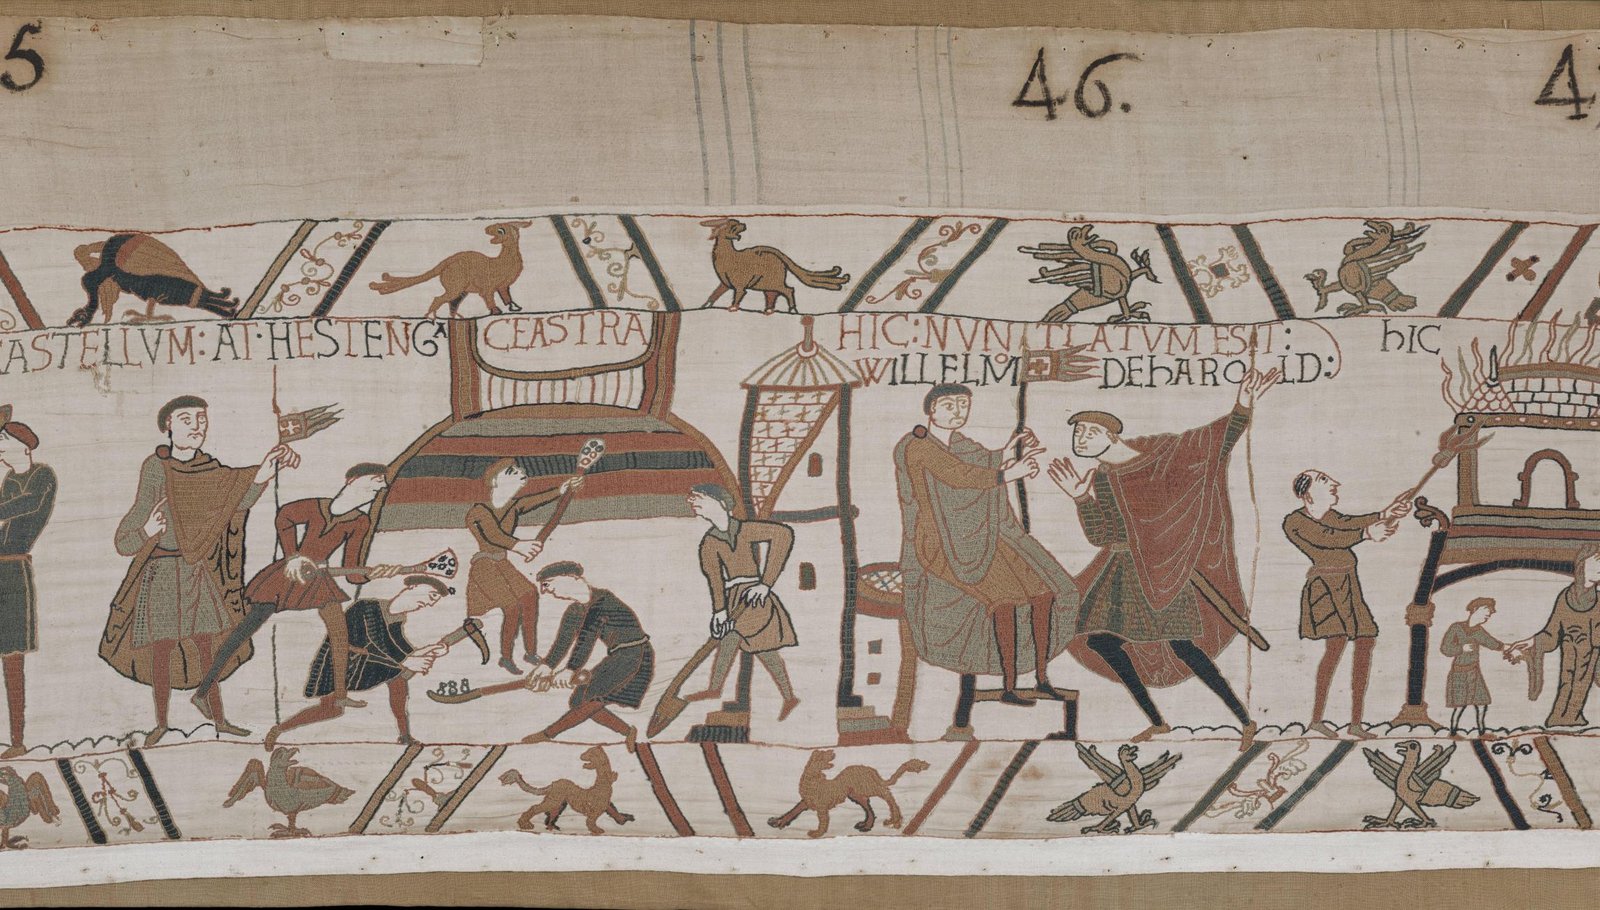 5
46.
CASTELLVM: AT·HESTENGA CEASTRA
HIC: NVNTIATVM EST:
WILLELMO DE hAROLD:
hIC